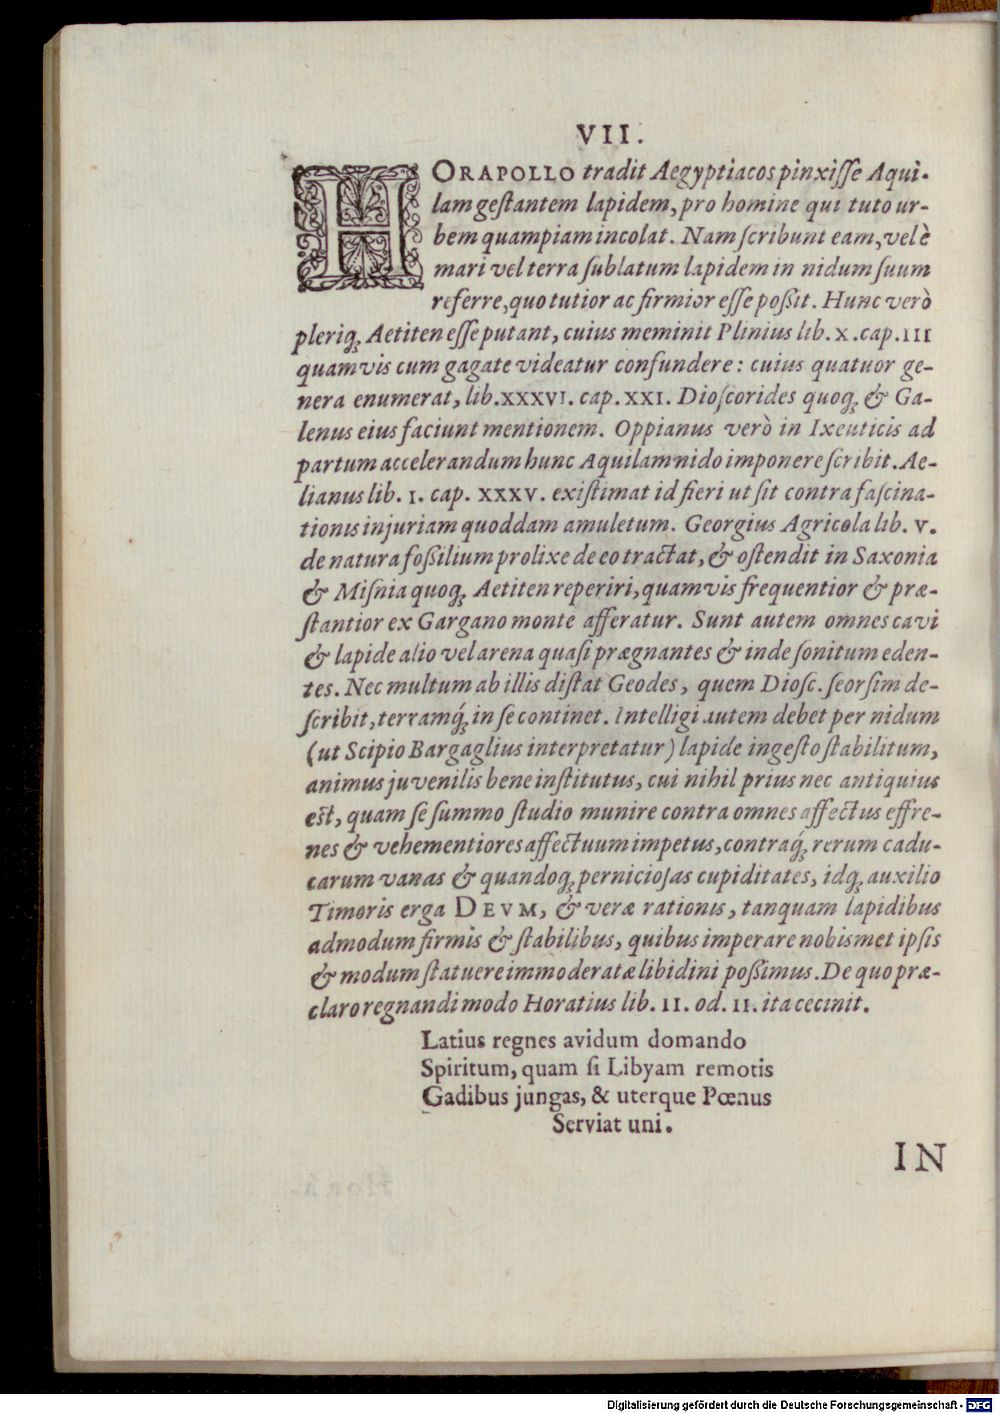 VII.
HORAPOLLO tradit Aegyptiacos pinxiſſe Aqui-
lam geſtantem lapidem, pro homine qui tuto ur-
bem quampiam incolat. Nam ſcribunt eam, vel è
mari vel terra ſublatum lapidem in nidum ſuum
referre, quo tutior ac firmior eſſe poßit. Hunc verò
pleriq́ꝫ Aetiten eſſe putant, cuius meminit Plinius lib. X. cap. III
quamvis cum gagate videatur confundere: cuius quatuor ge-
nera enumerat, lib. XXXVI. cap. XXI. Dioſcorides quoqꝫ & Ga-
lenus eius faciunt mentionem. Oppianus verò in Ixeuticis ad
partum accelerandum hunc Aquilam nido imponere ſcribit. Ae-
lianus lib. I. cap. XXXV. exiſtimat id fieri ut ſit contra faſcina-
tionis injuriam quoddam amuletum. Georgius Agricola lib. V.
de natura foßilium prolixe de eo tractat, & oſtendit in Saxonia
& Miſnia quoqꝫ Aetiten reperiri, quamvis frequentior & præ-
ſtantior ex Gargano monte afferatur. Sunt autem omnes cavi
& lapide alio vel arena quaſi prægnantes & inde ſonitum eden-
tes. Nec multum ab illis diſtat Geodes, quem Dioſc. ſeorſim de-
ſcribit, terramq́ꝫ in ſe continet. Intelligi autem debet per nidum
(ut Scipio Bargaglius interpretatur) lapide ingeſto ſtabilitum,
animus juvenilis bene inſtitutus, cui nihil prius nec antiquius
eſt, quam ſe ſummo ſtudio munire contra omnes affectus effre-
nes & vehementiores affectuum impetus, contraq́ꝫ rerum cadu-
carum vanas & quandoqꝫ pernicioſas cupiditates, idqꝫ auxilio
Timoris erga DEVM, & veræ rationis, tanquam lapidibus
admodum firmis & ſtabilibus, quibus imperare nobismet ipſis
& modum ſtatuere immoderatæ libidini poßimus. De quo præ-
claro regnandi modo Horatius lib. II. od. II. ita cecinit.
Latius regnes avidum domando
Spiritum, quam ſi Libyam remotis
Gadibus jungas, & uterque Pœnus
Serviat uni.
IN
Digitalisierung gefördert durch die Deutsche Forschungsgemeinschaft - DFG